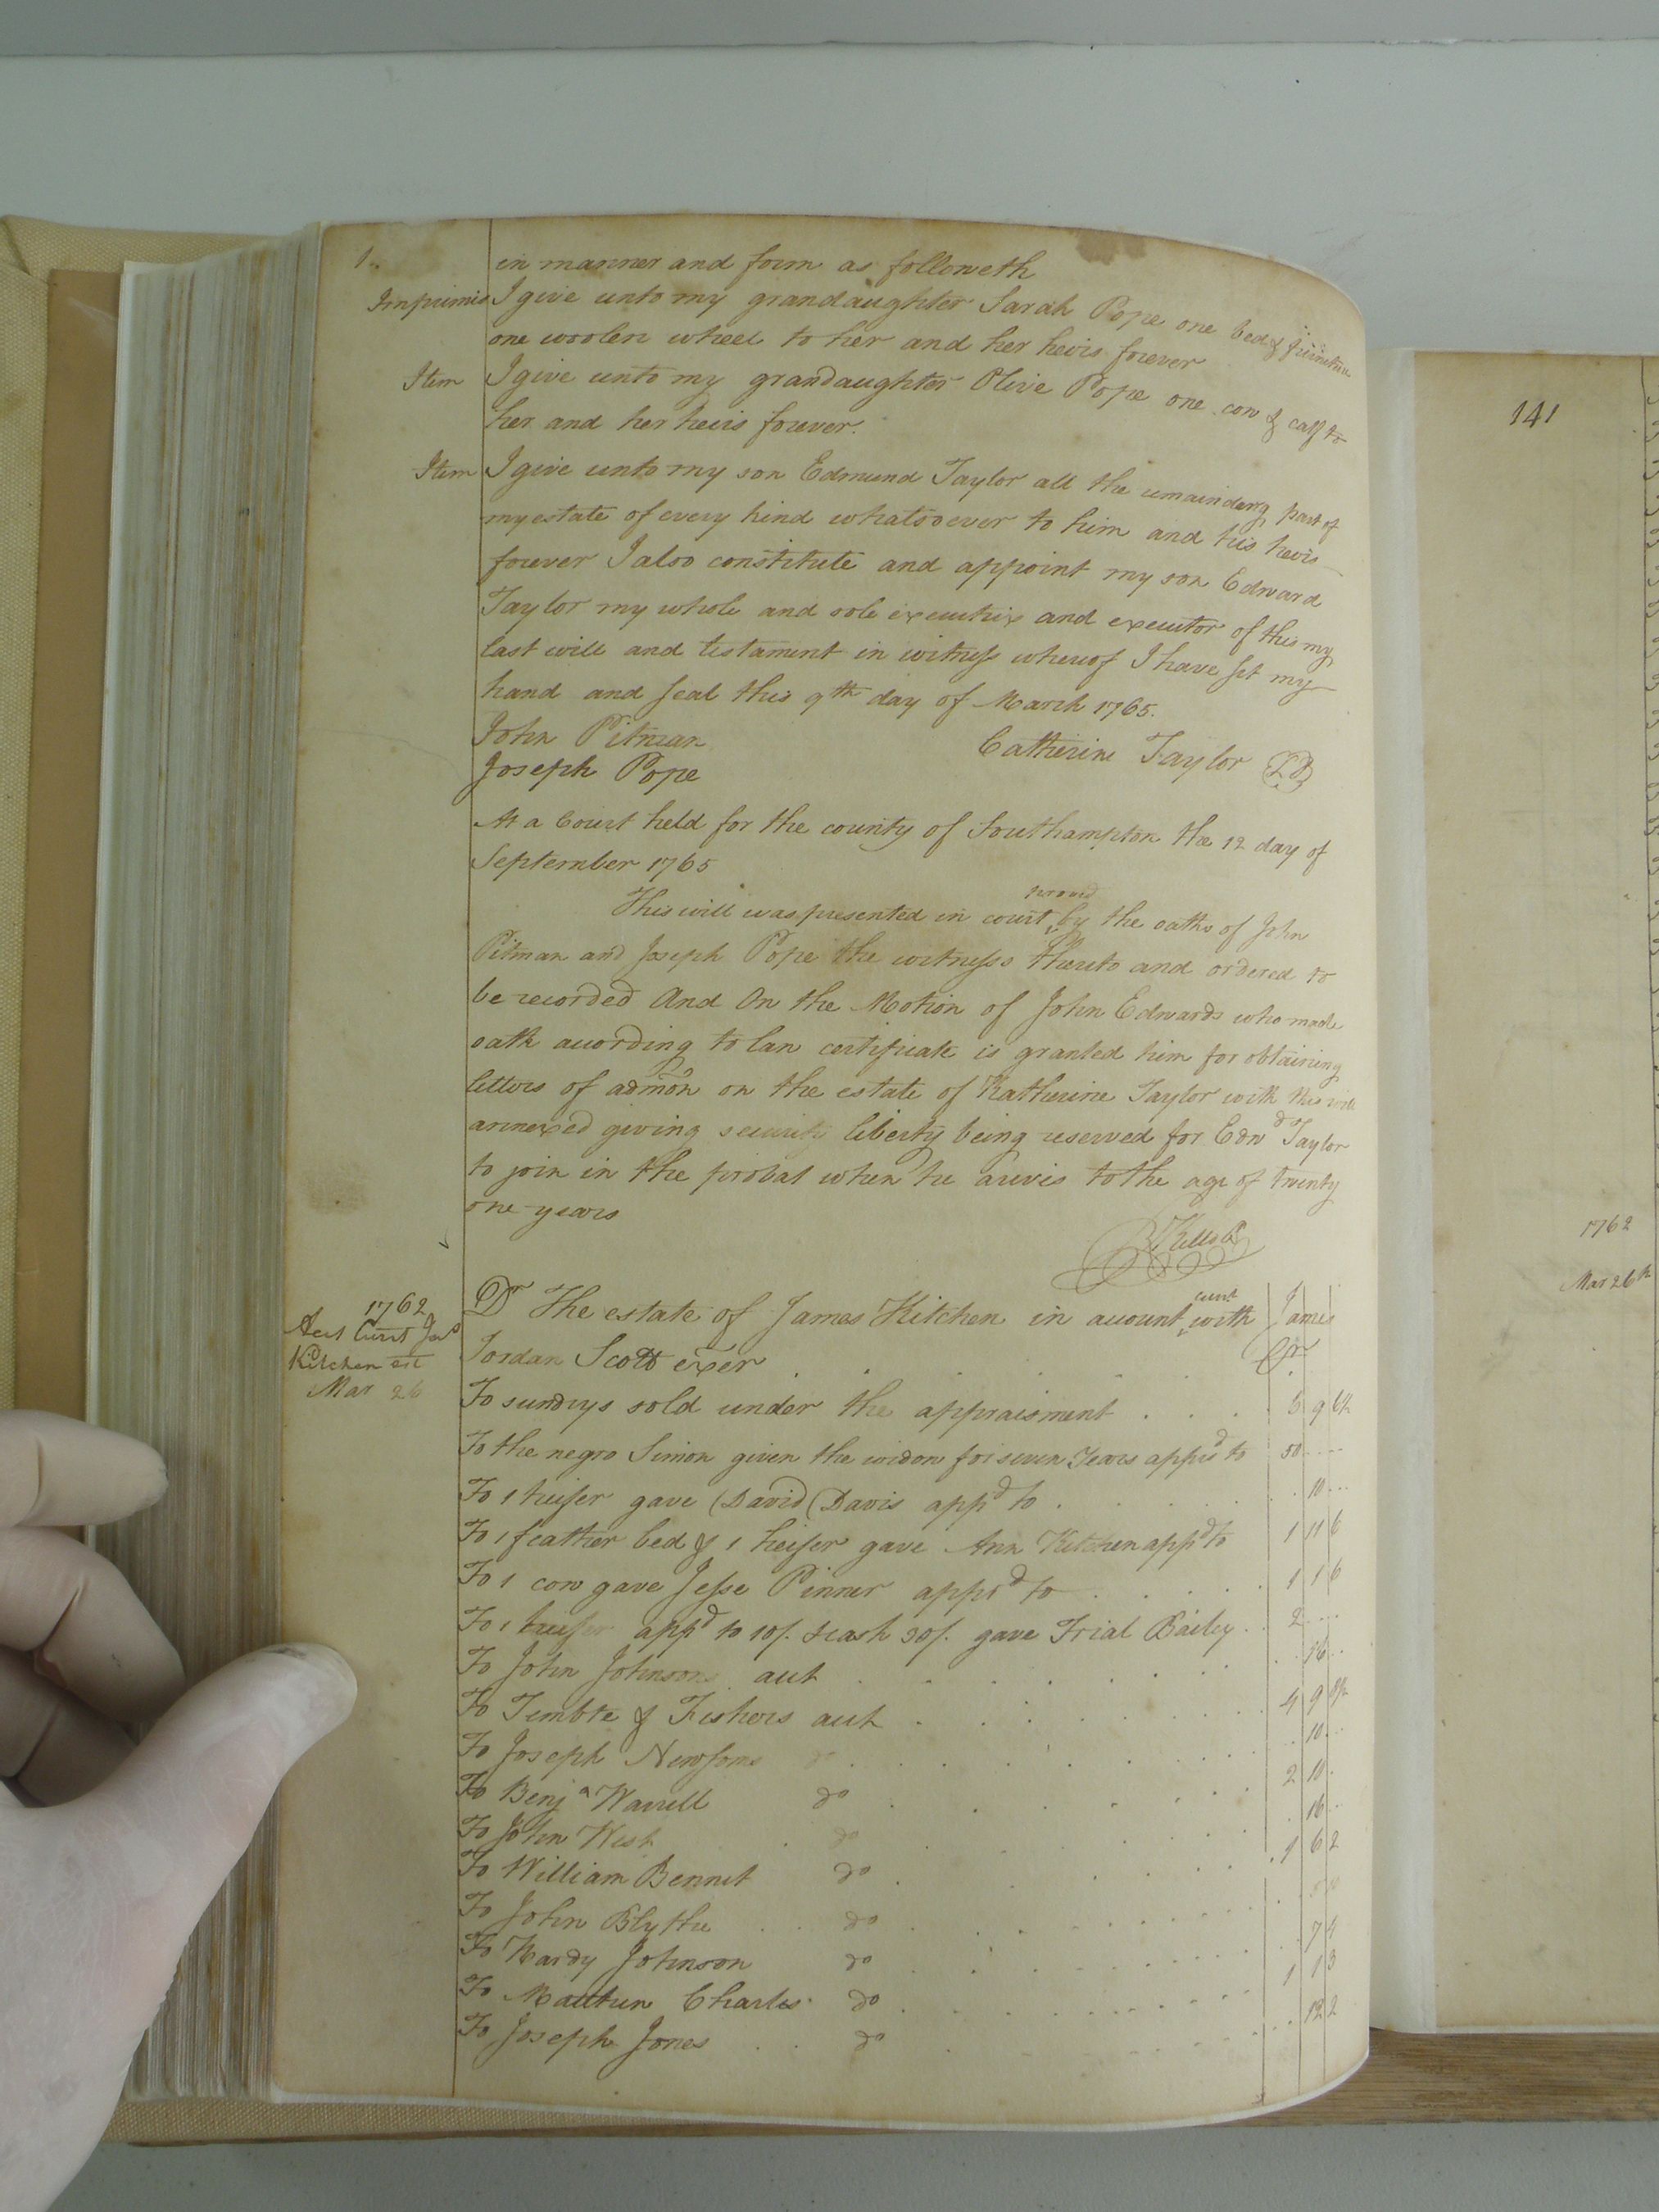 in manner and form as followeth
Imprimis I give unto my grandaughter Sarah Pope one bed & furniture
one woolen wheel to her and her heirs forever
Item I give unto my grandaughter Olive Pope one cow & calf to
her and her heirs forever.
Item I give unto my son Edmund Taylor all the remainderg part of
my estate of every kind whatsoever to him and his heirs
forever I also constitute and appoint my son Edward
Taylor my whole and sole executrix and executor of this my
last will and testament in witness whereof I have set my
hand and seal this 9th day of March 1765.
John Pitman
Catherine Taylor
Joseph Pope
At a Court held for the county of Southampton the 12 day of
September 1765
This will was presented in court proved by the oaths of John
Pitman and Joseph Pope the witnesss thereto and ordered to
be recorded And On the Motion of John Edwards who made
oath acording to law certificate is granted him for obtaining
letters of admon on the estate of Katherine Taylor with the will
annexed giving security liberty being reserved for Edwd Taylor
to join in the probat when he arivis to the age of twenty
one years
1762
Kitchen est
Mar 26
Dr The estate of James Kitchen in acount curt with James
Jordan Scott exer Cr
To sundrys sold under the appraisment
To the negro Simon given the widow for seven Years apprd to 50
To 1 heifer gave David Davis appd to 10
To 1 feather bed & 1 heifer gave Ann Kitchen appd to 1 11 6
To 1 cow gave Jesse Pinner apprd to 1 1 6
To 1 heifer appd to 10/. & cash 30/. gave Trial Bailey 2
To John Johnsons aut 16
To Tembte & Fishers aut 4 9
To Joseph Newsoms do 10
To Benja Warrell do 2 10
To John West do 16
To William Bennet do 1 6 2
To John Blythe do
To Hardy Johnson do 7 4
To Matthew Charles do 1 1 3
To Joseph Jones do 12 2
141
1762
Mar 26th